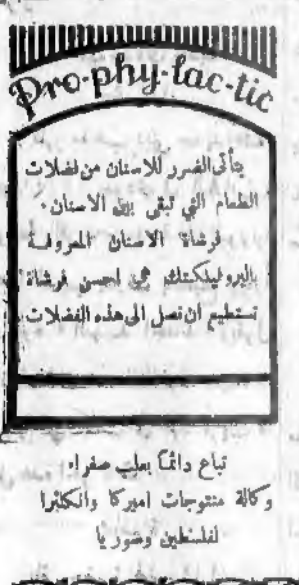 Pro-phy-lac-tic
يتأتى الضرر للاسنان من فضلات
الطعام التي تبقى بين الاسنان.
فرشاة الاسنان المعروفة
بالبروفيلكتك هي احسن فرشاة
تستطيع ان تصل الى هذه الفضلات
تباع دائماً بعلب صفراء
وكالة منتوجات اميركا وانكلترا
لفلسطين وسوريا